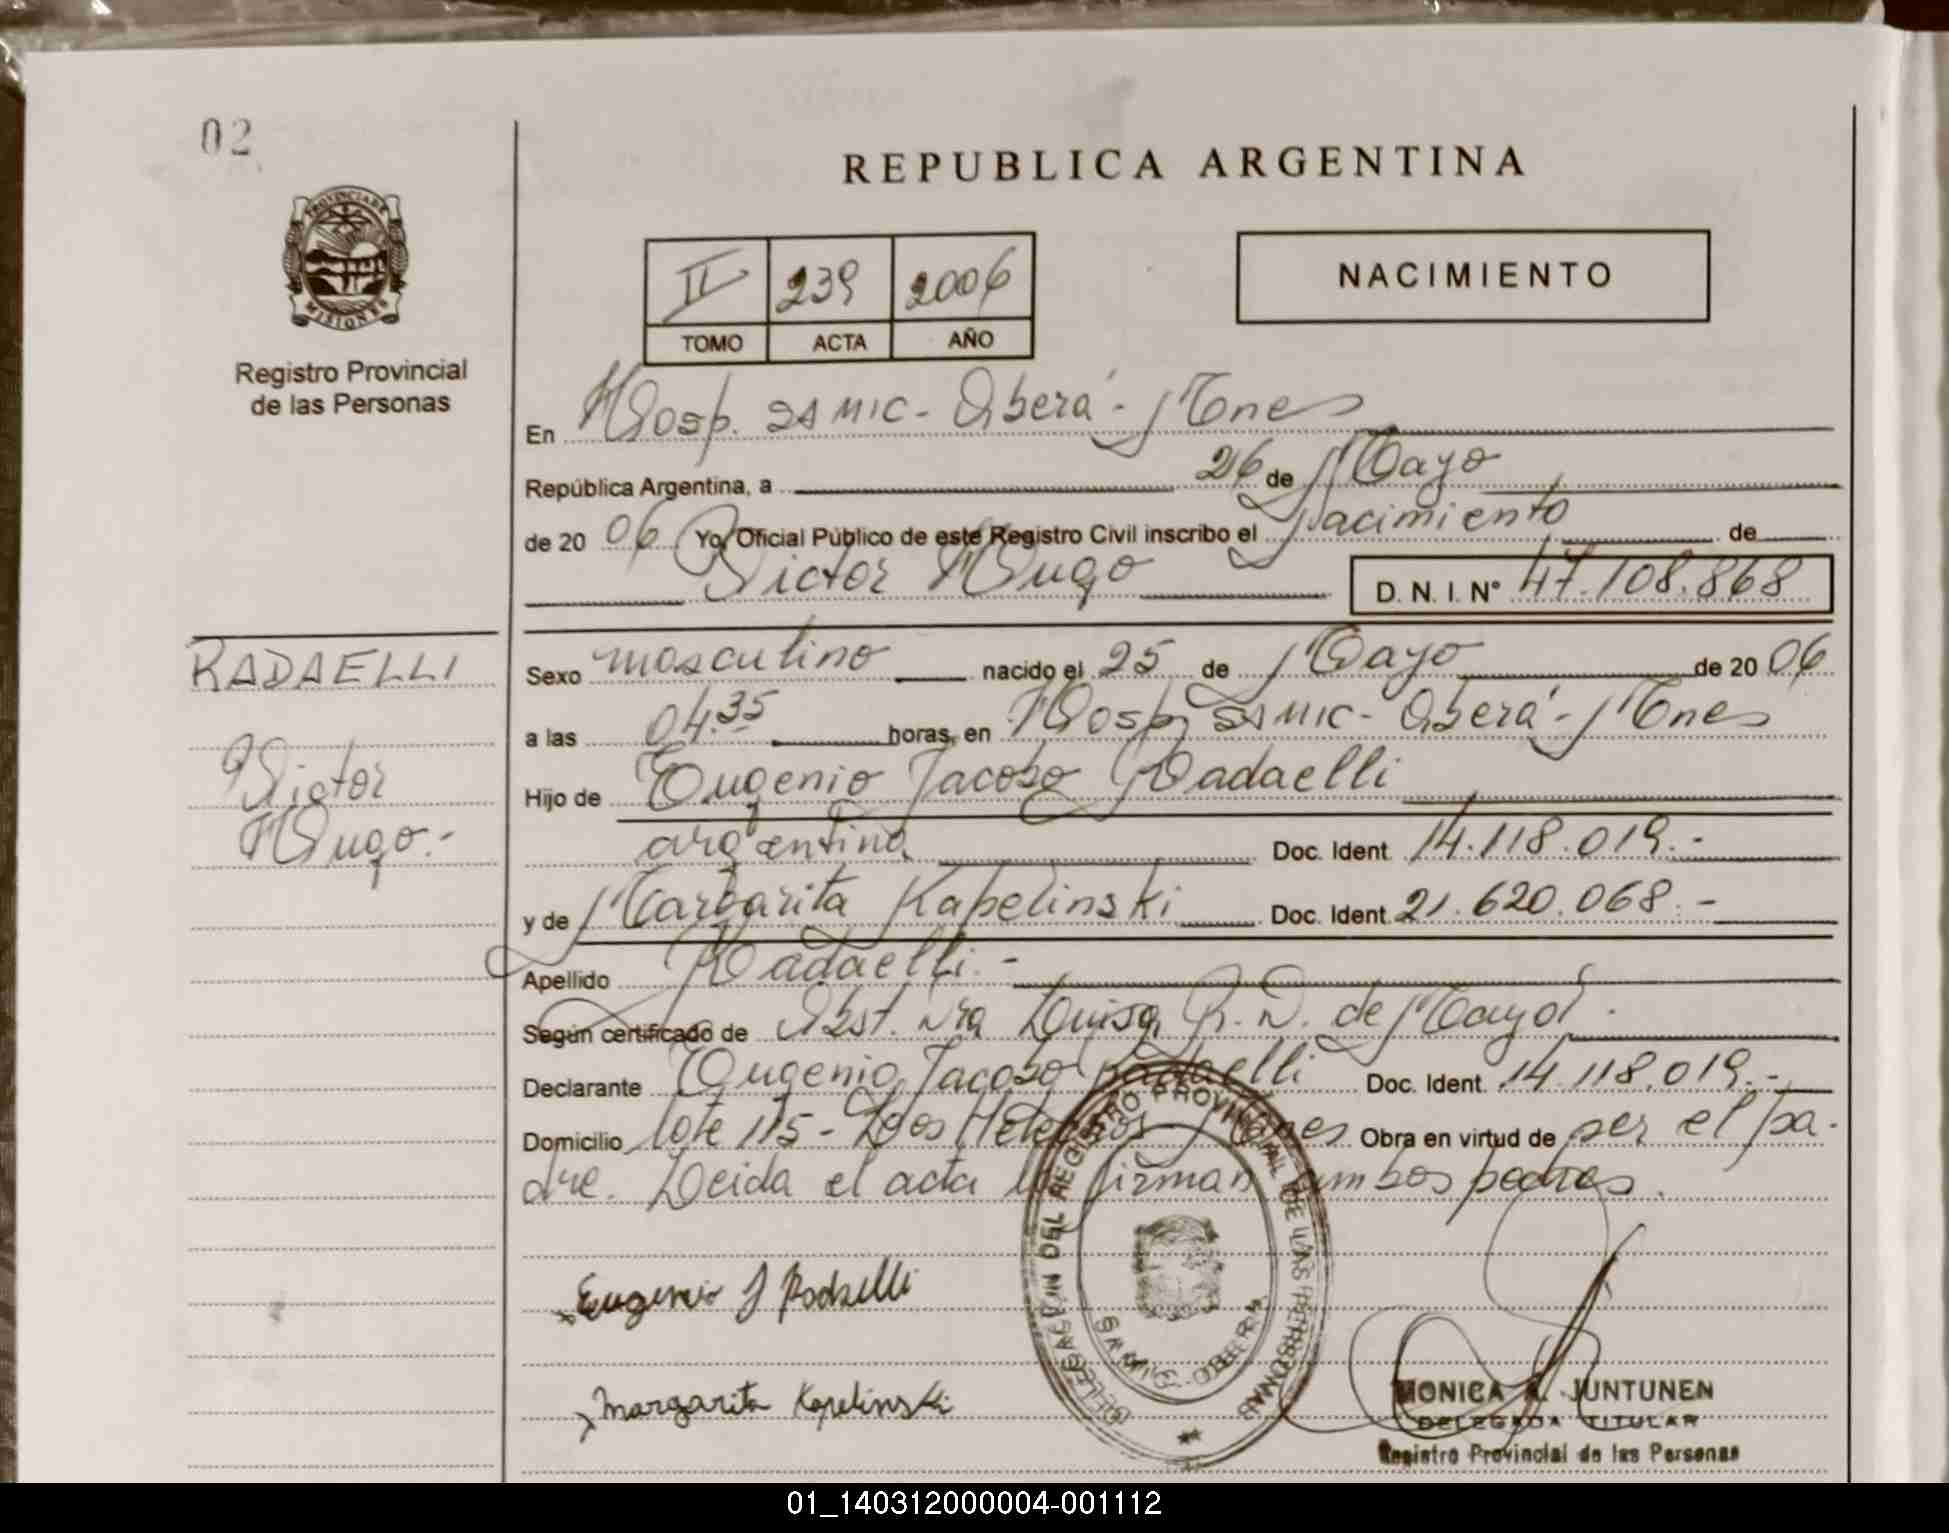 02
REPUBLICA ARGENTINA
PROVINCIA DE
MISIONES
Registro Provincial
de las Personas
II 239 2006
TOMO ACTA AÑO
NACIMIENTO
En Hosp. SAMIC - Oberá - Mnes
República Argentina, a 26 de Mayo
de 2006 Yo, Oficial Público de este Registro Civil inscribo el nacimiento de
Victor Hugo D. N. I. Nº 47.108.868
RADAELLI
Victor
Hugo.-
Sexo masculino nacido el 25 de Mayo de 2006
a las 04.35 horas, en Hosp. SAMIC - Oberá - Mnes
Hijo de Eugenio Jacobo Radaelli
argentina Doc. Ident. 14.118.019.-
y de Margarita Kapelinski Doc. Ident. 21.620.068.-
Apellido Radaelli.-
Según certificado de Obst. Dra Luisa R. D. de
Declarante Eugenio Jacobo Radaelli Doc. Ident. 14.118.019.-
Domicilio lote 115 - Los Mnes Obra en virtud de ser el pa-
dre. Leida el acta la firman ambos padres.
Eugenio J Radaelli
Margarita Kapelinski
DELEGACION DEL REGISTRO PROVINCIAL DE LAS PERSONAS
SAMIC - OBERA
MONICA A. JUNTUNEN
DELEGADA TITULAR
Registro Provincial de las Personas
01_140312000004-001112